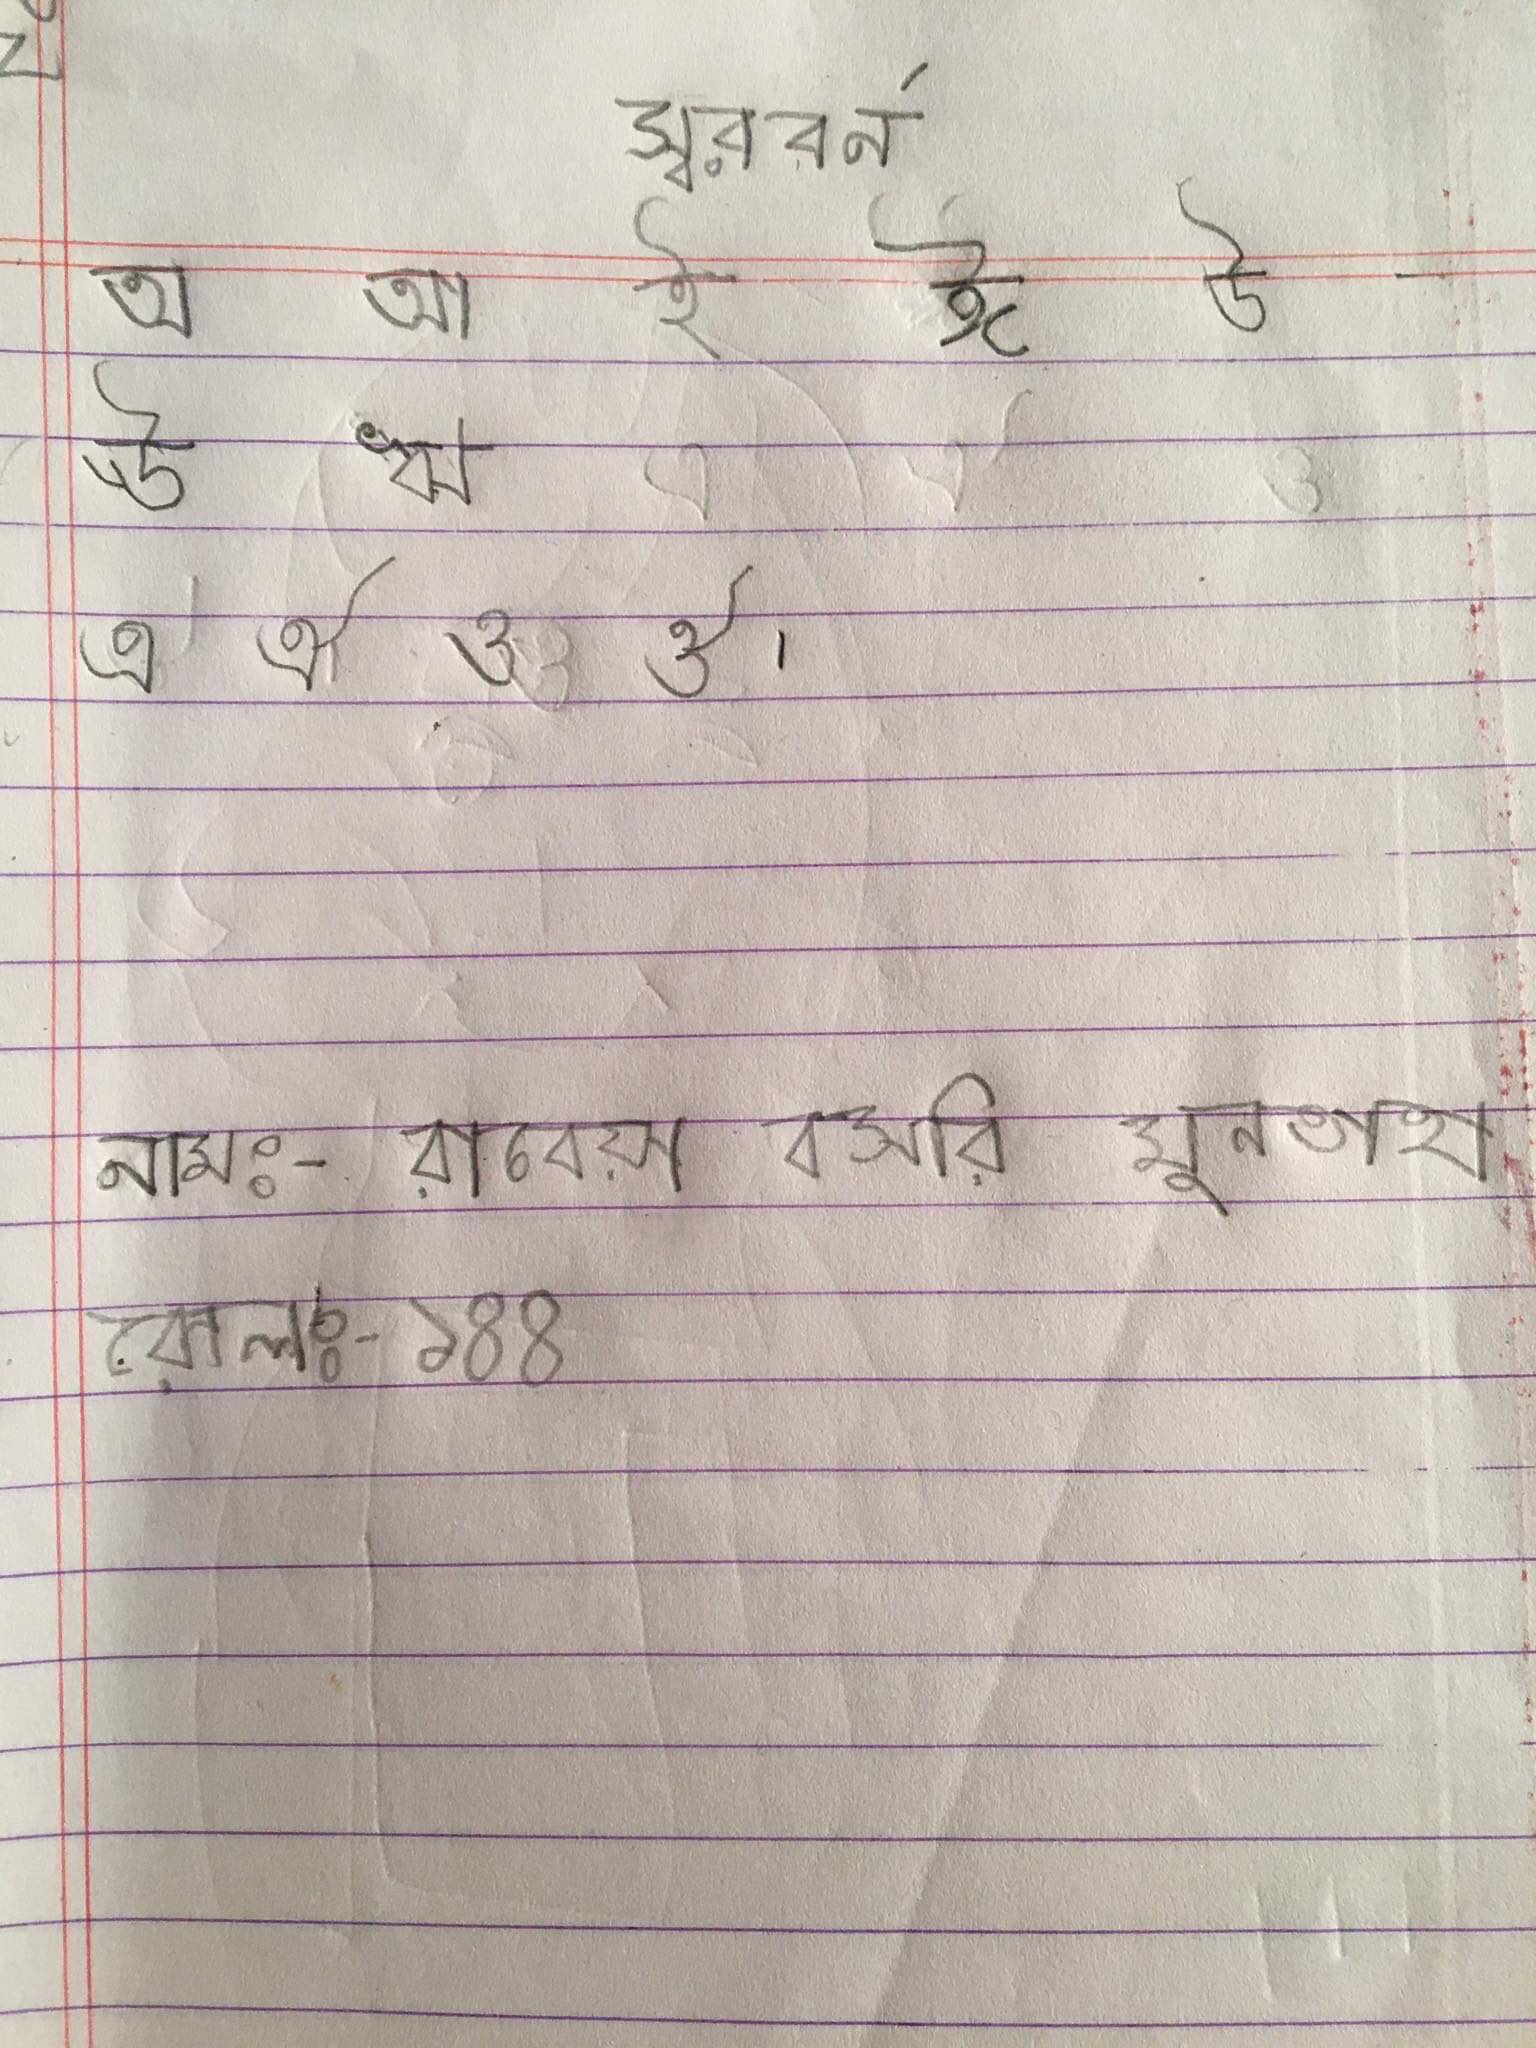 স্বরবর্ন
অ আ ই ঈ উ -
ঊ ঋ
এ ঐ ও ঔ ।
নামঃ- রাবেয়া বসরি মুনতাহা
রোলঃ- ১৪৪